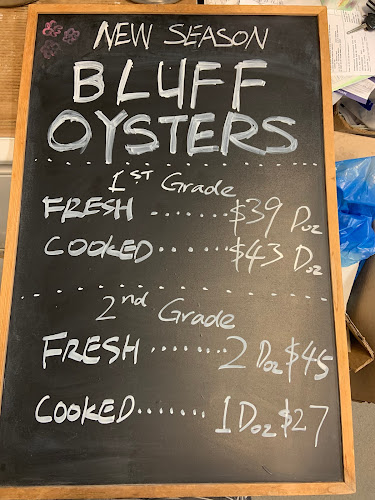 NEW SEASON
BLUFF
OYSTERS
1ST Grade
FRESH ...... $39 Doz
COOKED ...... $43 Doz
2nd Grade
FRESH ....... 2 Doz $45
COOKED ....... 1 Doz $27